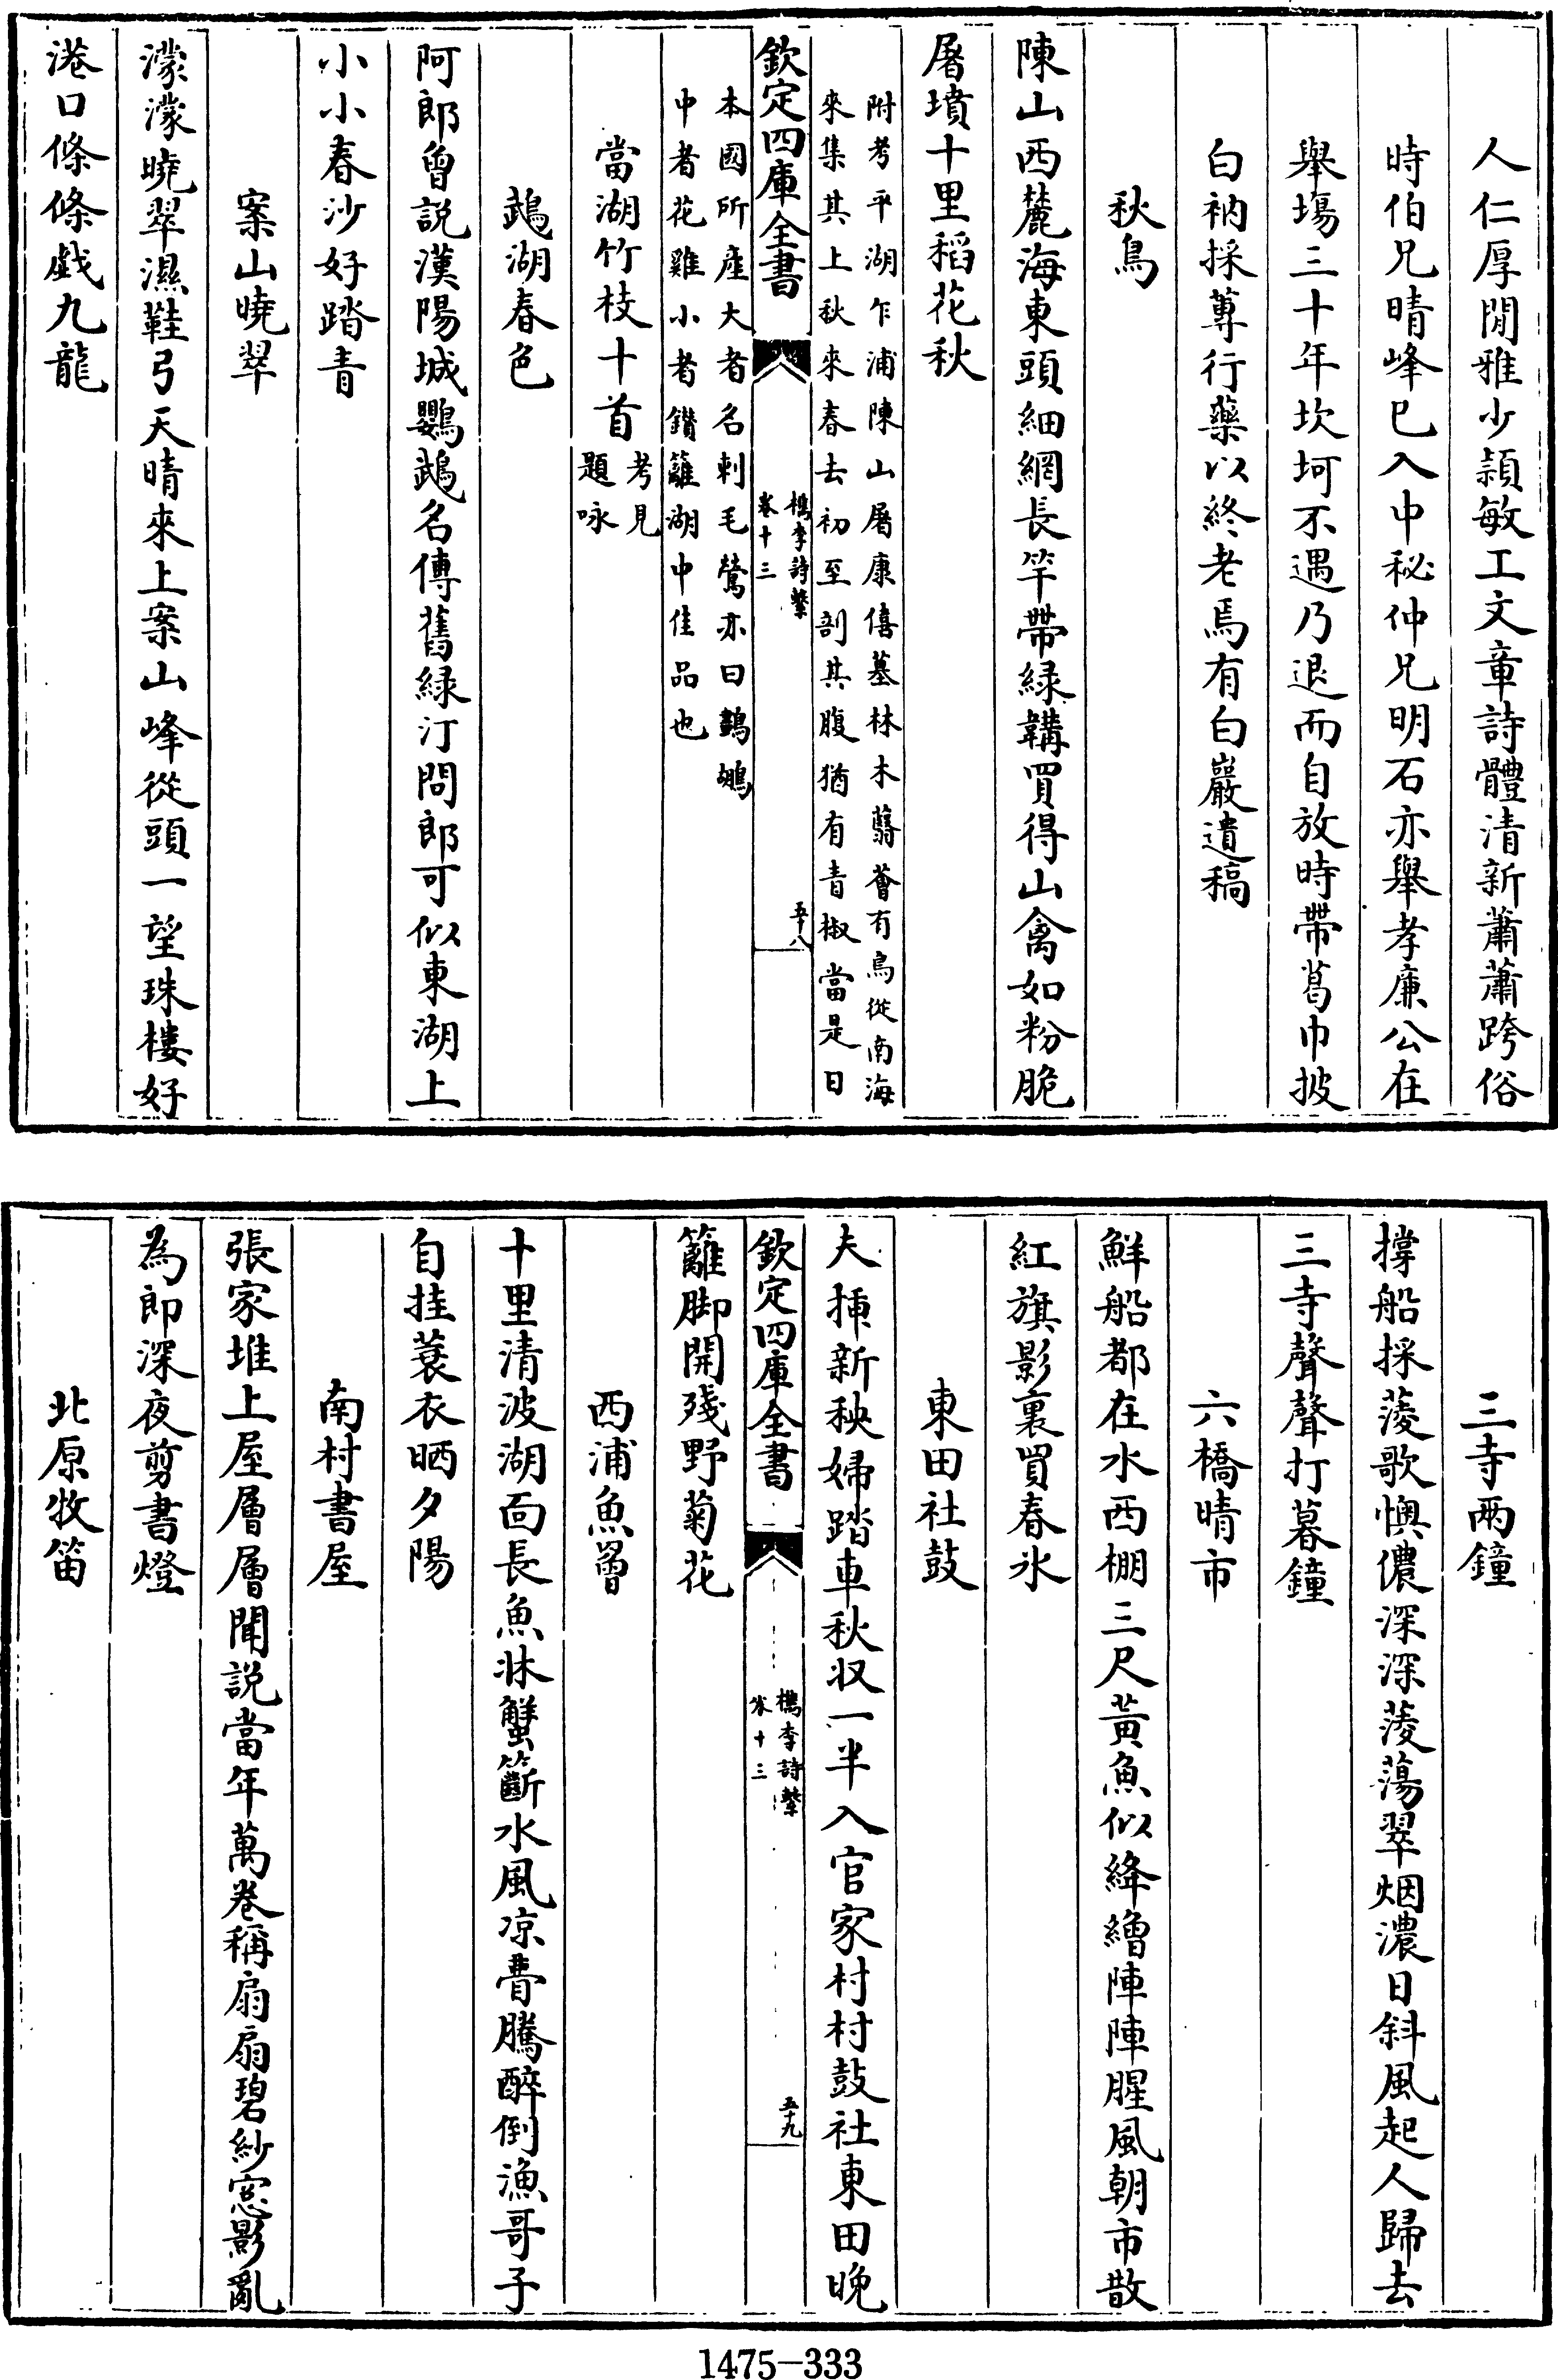 人仁厚閒雅少頴敏工文章詩體清新蕭蕭跨俗
時伯兄晴峰已入中秘仲兄明石亦舉孝廉公在
舉塲三十年坎坷不遇乃退而自放時帶葛巾披
白衲採蓴行藥以終老焉有白巖遺稿
秋鳥
陳山西麓海東頭細網長竿帶緑鞲買得山禽如粉脆
屠墳十里稻花秋
附考平湖乍浦陳山屠康僖墓林木蘙薈有鳥從南海
來集其上秋來春去初至剖其腹猶有青椒當是日
欽定四庫全書
檇李詩繫
卷十三
五十八
本國所產大者名刺毛鶯亦曰鷜鶵
中者花雞小者鑽籬湖中佳品也
當湖竹枝十首
考見
題咏
鵡湖春色
阿郎曾説漢陽城鸚鵡名傳舊緑汀問郎可似東湖上
小小春沙好踏青
案山曉翠
濛濛曉翠濕鞋弓天晴來上案山峰從頭一望珠樓好
港口條條戲九龍
三寺兩鐘
撐船採蔆歌懊儂深深蔆蕩翠烟濃日斜風起人歸去
三寺聲聲打暮鐘
六橋晴市
鮮船都在水西棚三尺黃魚似絳繒陣陣腥風朝市散
紅旗影裏買春氷
東田社鼓
夫插新秧婦踏車秋収一半入官家村村鼓社東田晚
欽定四庫全書
檇李詩繫
卷十三
五十九
籬脚開殘野菊花
西浦魚罾
十里清波湖面長魚牀蟹籪水風凉瞢騰醉倒漁哥子
自挂蓑衣晒夕陽
南村書屋
張家堆上屋層層聞説當年萬卷稱扇扇碧紗窓影亂
為郎深夜剪書燈
北原牧笛
1475-333